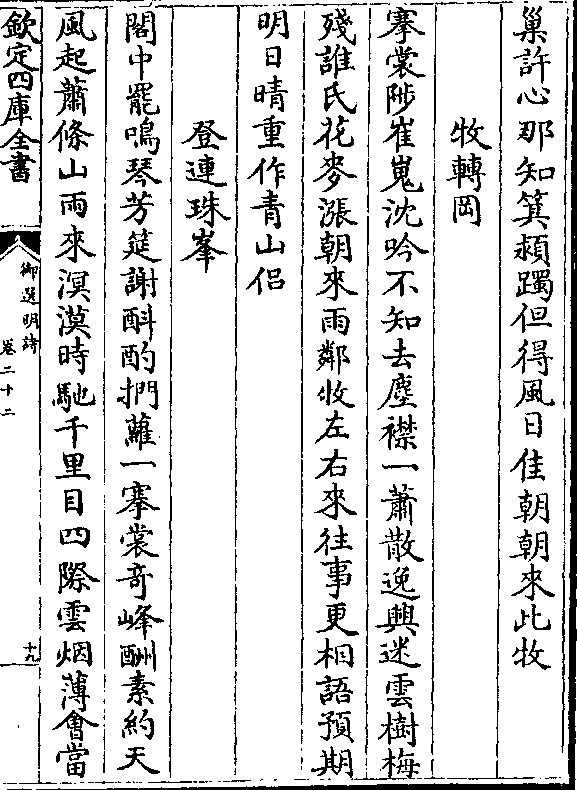 巢許心那知箕潁躅但得風日佳朝朝來此牧
牧轉岡
搴裳陟崔嵬沈吟不知去塵襟一蕭散逸興迷雲樹梅
殘誰氏花麥漲朝來雨鄰收左右來往事更相語預期
明日晴重作青山侶
登連珠峯
閣中罷鳴琴芳筵謝斟酌捫蘿一搴裳奇峰酬素約天
風起蕭條山雨來溟漠時馳千里目四際雲烟薄會當
欽定四庫全書
御選明詩
卷二十二
十九